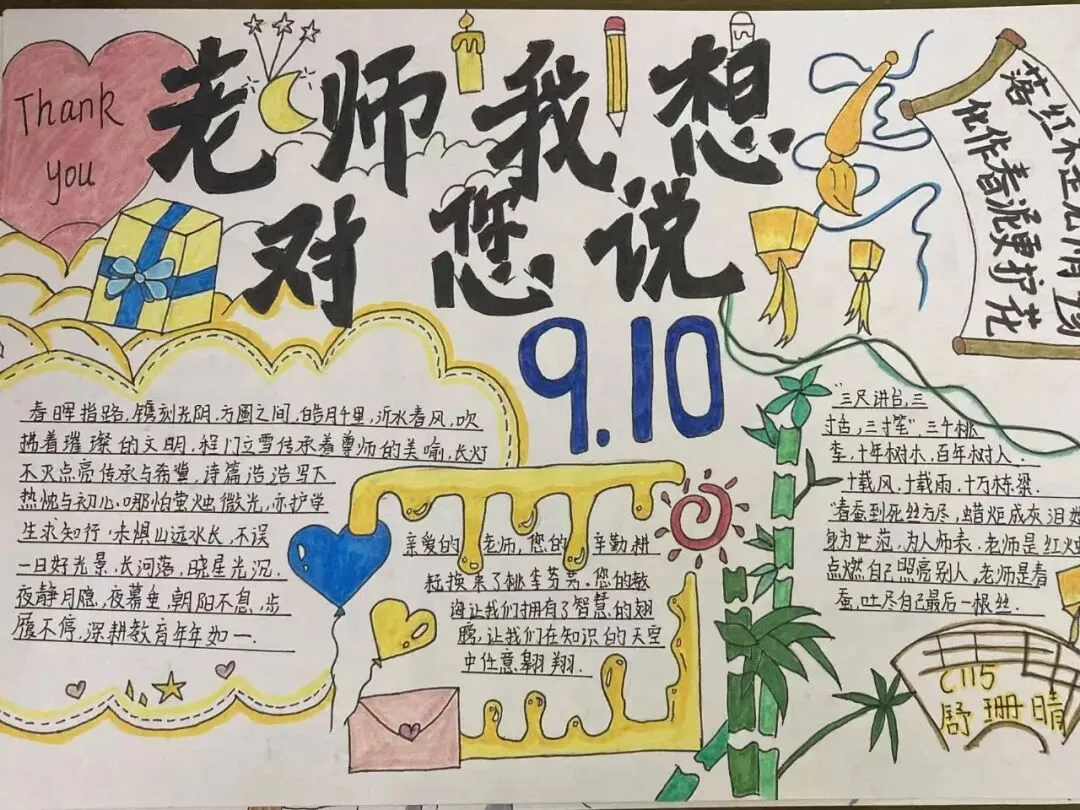 Thank
you
老师我想
对您说
9.10
落红不是无情物
化作春派更护花
春晖指路,镌刻光阴.方圆之间,皓月千里,沂水春风,吹
拂着璀璨的文明,程门立雪传承着尊师的美喻,长灯
不灭点亮传承与希冀,诗篇浩浩写下
热忱与初心.哪怕萤烛微光,亦护学
生求知行.未惧山远水长,不误
一日好光景.长河落,晓星光沉.
夜静月隐,夜幕垂,朝阳不息,步
履不停,深耕教育年年如一.
亲爱的老师,您的辛勤耕
耘换来了桃李芬芳.您的教
诲让我们拥有了智慧的翅
膀,让我们在知识的天空
中任意翱翔.
"三尺讲台,三
寸舌,三寸笔",三千桃
李,十年树木,百年树人.
十载风,十载雨,十万栋梁.
"春蚕到死丝方尽,蜡炬成灰泪
身为世范,为人师表.老师是红
点燃自己照亮别人,老师是春
蚕,吐尽自己最后一根丝.
C115
舒珊晴